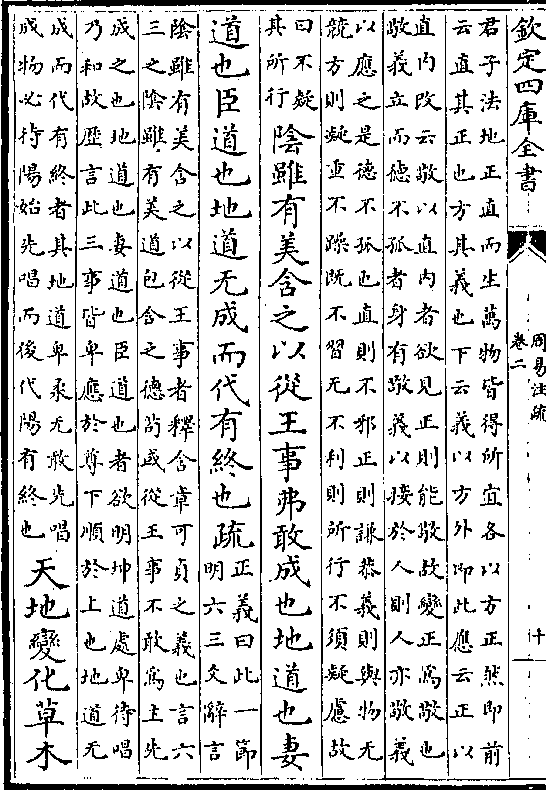 欽定四庫全書
周易注疏
卷二
十
君子法地正直而生萬物皆得所宜各以方正然即前
云直其正也方其義也下云義以方外即此應云正以
直内改云敬以直内者欲見正則能敬故變正為敬也
敬義立而德不孤者身有敬義以接於人則人亦敬義
以應之是德不孤也直則不邪正則謙恭義則與物无
競方則凝重不躁既不習无不利則所行不須疑慮故
曰不疑
其所行
陰雖有美含之以從王事弗敢成也地道也妻
道也臣道也地道无成而代有終也疏
正義曰此一節
明六三爻辭言
陰雖有美含之以從王事者釋含章可貞之義也言六
三之陰雖有美道包含之德苟或從王事不敢為主先
成之也地道也妻道也臣道也者欲明坤道處卑待唱
乃和故歷言此三事皆卑應於尊下順於上也地道无
成而代有終者其地道卑柔无敢先唱
成物必待陽始先唱而後代陽有終也
天地變化草木